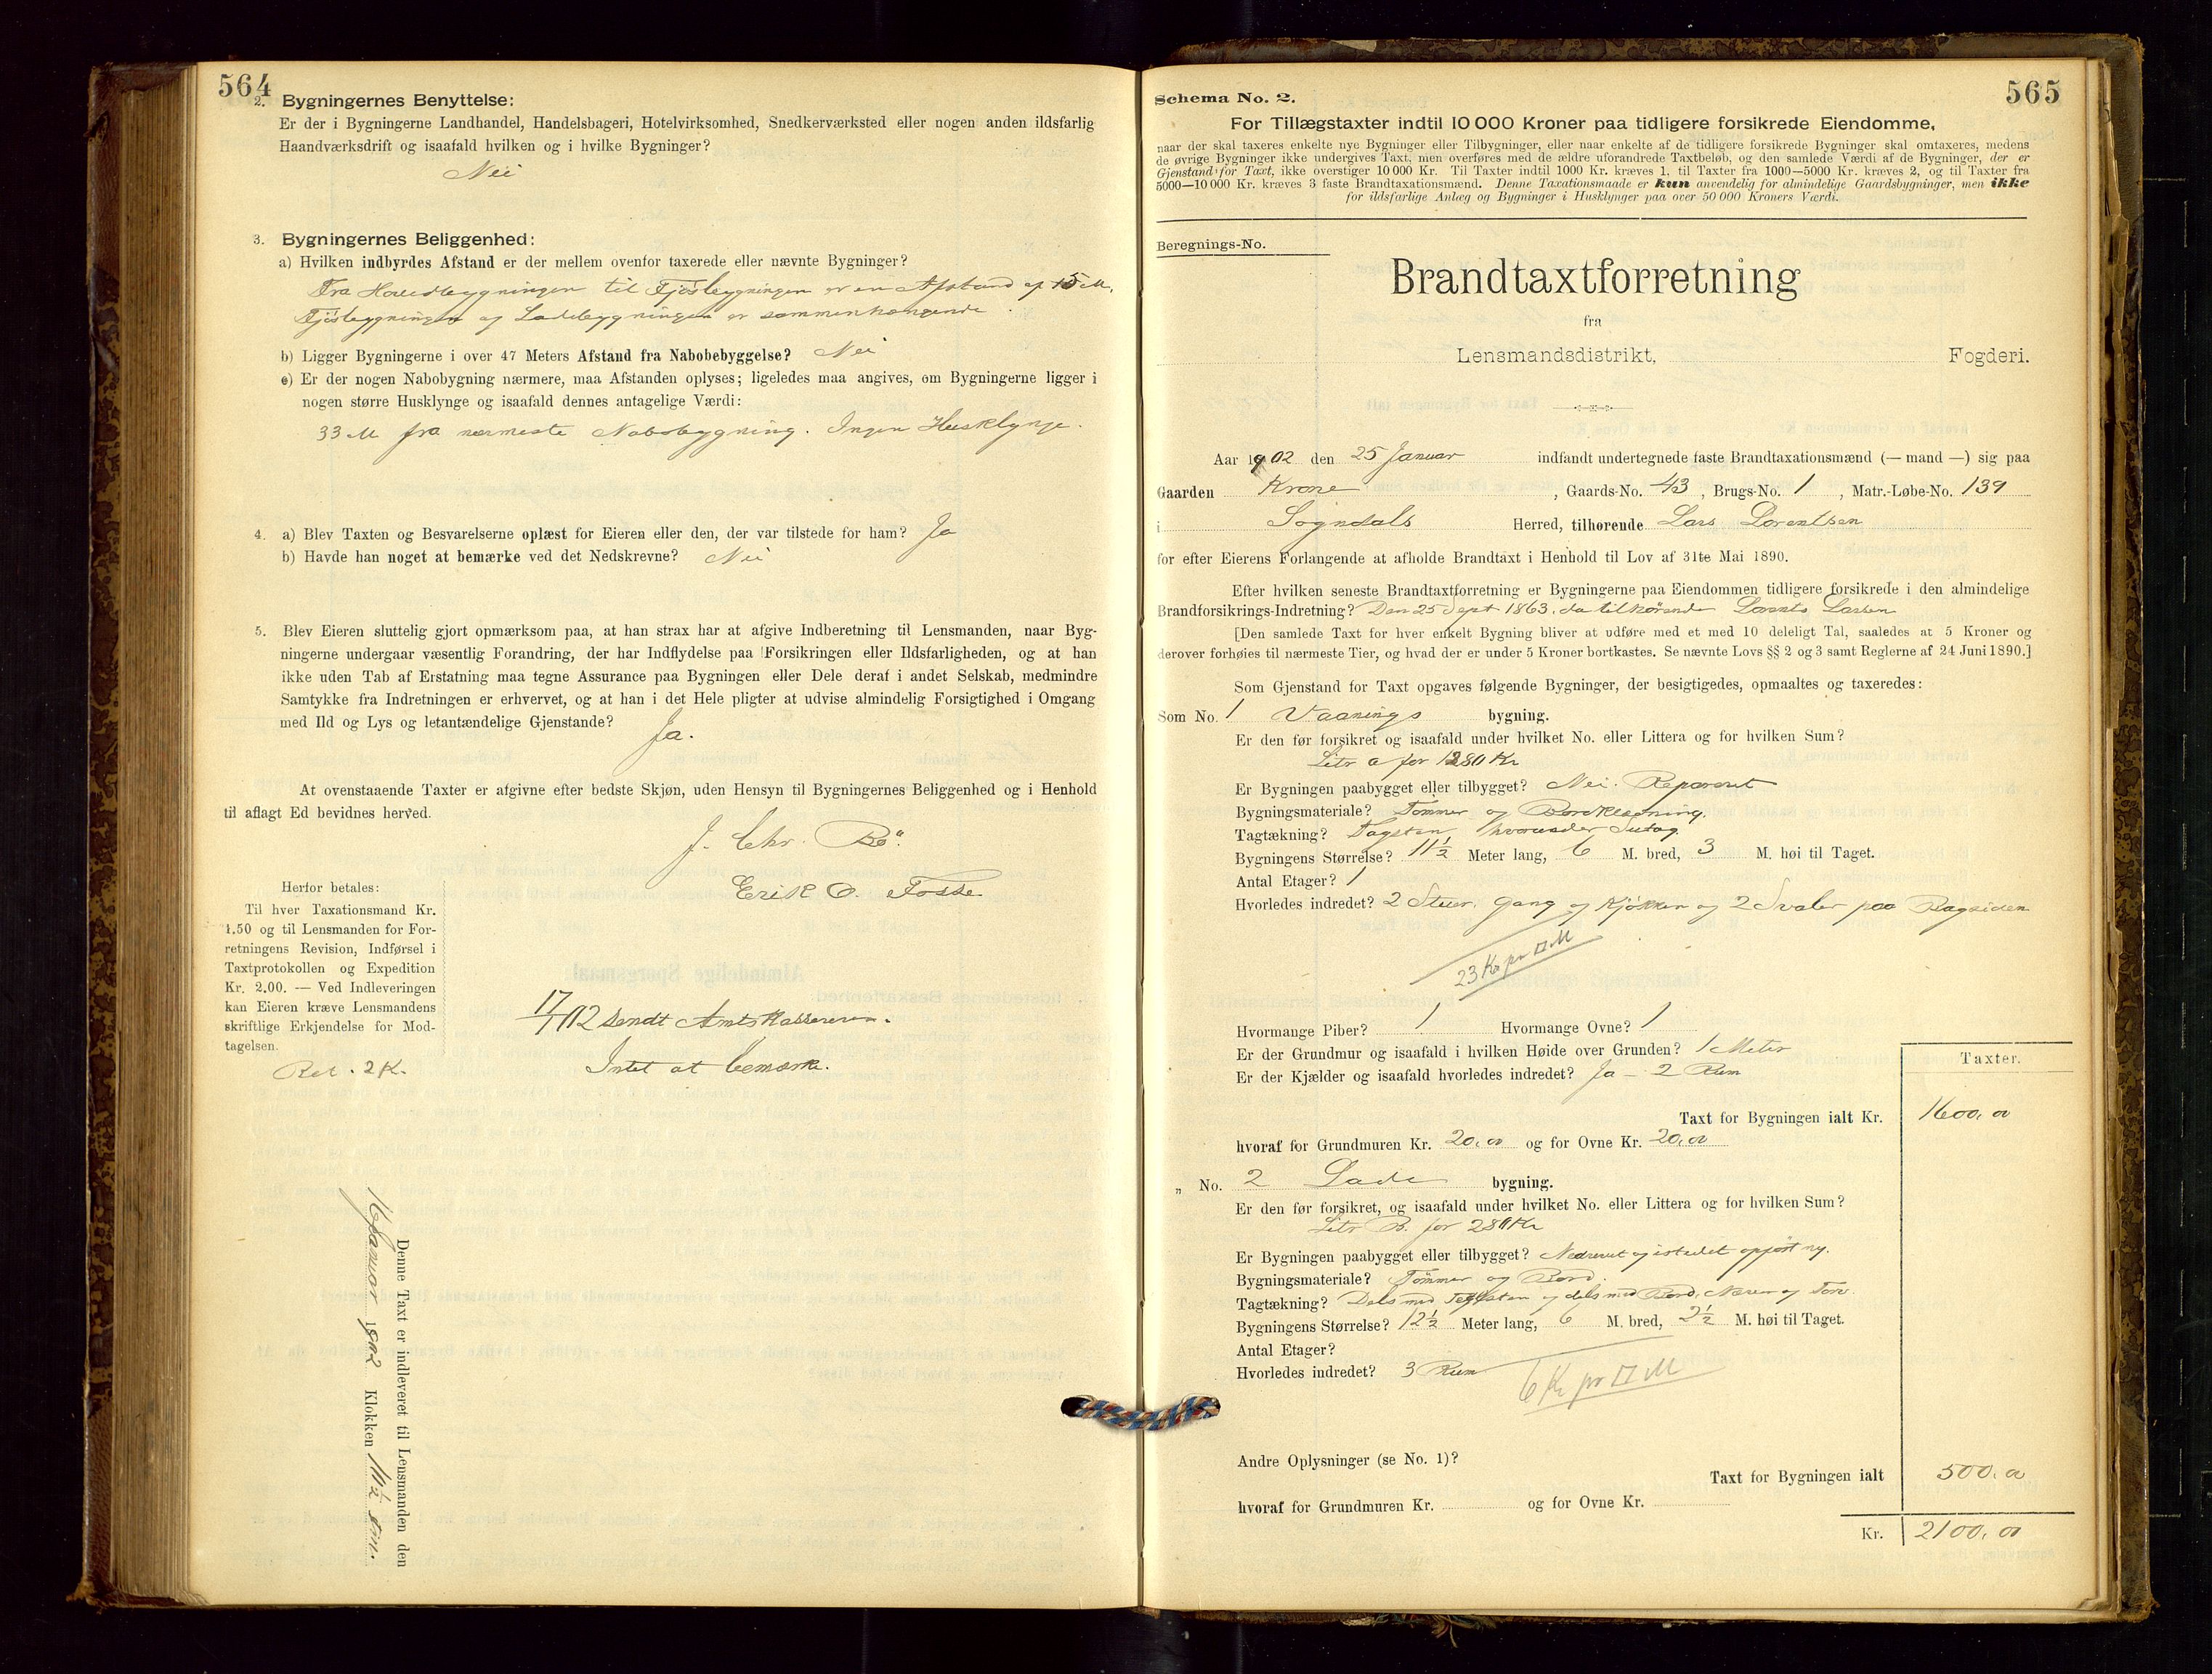 564
2. Bygningernes Benyttelse:
Er der i Bygningerne Landhandel, Handelsbageri, Hotelvirksomhed, Snedkerværksted eller nogen anden ildsfarlig
Haandværksdrift og isaafald hvilken og i hvilke Bygninger?
Nei
3. Bygningernes Beliggenhed:
a) Hvilken indbyrdes Afstand er der mellem ovenfor taxerede eller nævnte Bygninger?
Fra Hovedbygningen til Fjøsbygningen er en Afstand af 15 M.
Fjøsbygningen og Ladebygningen er sammenhængende
b) Ligger Bygningerne i over 47 Meters Afstand fra Nabobebyggelse? Nei
c) Er der nogen Nabobygning nærmere, maa Afstanden oplyses; ligeledes maa angives, om Bygningerne ligger i
nogen større Husklynge og isaafald dennes antagelige Værdi:
33 M fra nærmeste Nabobygning. Ingen Husklynge.
4. a) Blev Taxten og Besvarelserne oplæst for Eieren eller den, der var tilstede for ham? Ja
b) Havde han noget at bemærke ved det Nedskrevne? Nei
5. Blev Eieren sluttelig gjort opmærksom paa, at han strax har at afgive Indberetning til Lensmanden, naar Byg-
ningerne undergaar væsentlig Forandring, der har Indflydelse paa Forsikringen eller Ildsfarligheden, og at han
ikke uden Tab af Erstatning maa tegne Assurance paa Bygningen eller Dele deraf i andet Selskab, medmindre
Samtykke fra Indretningen er erhvervet, og at han i det Hele pligter at udvise almindelig Forsigtighed i Omgang
med Ild og Lys og letantændelige Gjenstande?
Ja.
At ovenstaaende Taxter er afgivne efter bedste Skjøn, uden Hensyn til Bygningernes Beliggenhed og i Henhold
til aflagt Ed bevidnes herved.
J. Chr. Bö.
Erik O. Fosse
Herfor betales:
Til hver Taxationsmand Kr.
1.50 og til Lensmanden for For-
retningens Revision, Indførsel i
Taxtprotokollen og Expedition
Kr. 2.00. — Ved Indleveringen
kan Eieren kræve Lensmandens
skriftlige Erkjendelse for Mod-
tagelsen.
Bet. 2 K.
sendt Amtskassereren.
Intet at bemærke.
Denne Taxt er indleveret til Lensmanden den
Januar 1902 Klokken
565
Schema No. 2.
For Tillægstaxter indtil 10 000 Kroner paa tidligere forsikrede Eiendomme,
naar der skal taxeres enkelte nye Bygninger eller Tilbygninger, eller naar enkelte af de tidligere forsikrede Bygninger skal omtaxeres, medens
de øvrige Bygninger ikke undergives Taxt, men overføres med de ældre uforandrede Taxtbeløb, og den samlede Værdi af de Bygninger, der er
Gjenstand for Taxt, ikke overstiger 10 000 Kr. Til Taxter indtil 1000 Kr. kræves 1, til Taxter fra 1000—5000 Kr. kræves 2, og til Taxter fra
5000—10 000 Kr. kræves 3 faste Brandtaxationsmænd. Denne Taxationsmaade er kun anvendelig for almindelige Gaardsbygninger, men ikke
for ildsfarlige Anlæg og Bygninger i Husklynger paa over 50 000 Kroners Værdi.
Beregnings-No.
Brandtaxtforretning
fra
Lensmandsdistrikt, Fogderi.
Aar 1902 den 25 Januar indfandt undertegnede faste Brandtaxationsmænd (— mand —) sig paa
Gaarden Krone, Gaards-No. 43, Brugs-No. 1, Matr.-Løbe-No. 139
i Sogndals Herred, tilhørende Lars Lorentsen
for efter Eierens Forlangende at afholde Brandtaxt i Henhold til Lov af 31te Mai 1890.
Efter hvilken seneste Brandtaxtforretning er Bygningerne paa Eiendommen tidligere forsikrede i den almindelige
Brandforsikrings-Indretning? Den 25 Sept 1863, da tilhørende Lorents Larsen
[Den samlede Taxt for hver enkelt Bygning bliver at udføre med et med 10 deleligt Tal, saaledes at 5 Kroner og
derover forhøies til nærmeste Tier, og hvad der er under 5 Kroner bortkastes. Se nævnte Lovs §§ 2 og 3 samt Reglerne af 24 Juni 1890.]
Som Gjenstand for Taxt opgaves følgende Bygninger, der besigtigedes, opmaaltes og taxeredes:
Som No. 1 Vaanings bygning.
Er den før forsikret og isaafald under hvilket No. eller Littera og for hvilken Sum?
Litr a for 1280 Kr
Er Bygningen paabygget eller tilbygget? Nei. Reparert
Bygningsmateriale? Tømmer og Bordklædning.
Tagtækning? Tagsten, hvorunder Sutag.
Bygningens Størrelse? 11½ Meter lang, 6 M. bred, 3 M. høi til Taget.
Antal Etager? 1
Hvorledes indredet? 2 Stuer, Gang og Kjøkken og 2 Svaler paa Bagsiden
23 Kr pr □ M
Hvormange Piber? 1 Hvormange Ovne? 1
Er der Grundmur og isaafald i hvilken Høide over Grunden? 1 Meter
Er der Kjælder og isaafald hvorledes indredet? Ja - 2 Rum
Taxter.
Taxt for Bygningen ialt Kr. 1600,00
hvoraf for Grundmuren Kr. 20,00 og for Ovne Kr. 20,00
„ No. 2 Lade bygning.
Er den før forsikret, og isaafald under hvilket No. eller Littera og for hvilken Sum?
Litr B. for 280 Kr
Er Bygningen paabygget eller tilbygget? Nedrevet og istedet opført ny.
Bygningsmateriale? Tømmer og Bord.
Tagtækning? Dels med Tagsten og dels med Bord, Næver og Torv.
Bygningens Størrelse? 12½ Meter lang, 6 M. bred, 2½ M. høi til Taget.
Antal Etager?
Hvorledes indredet? 3 Rum
6 Kr pr □ M
Andre Oplysninger (se No. 1)?
Taxt for Bygningen ialt 500,00
hvoraf for Grundmuren Kr. og for Ovne Kr.
Kr. 2100,00